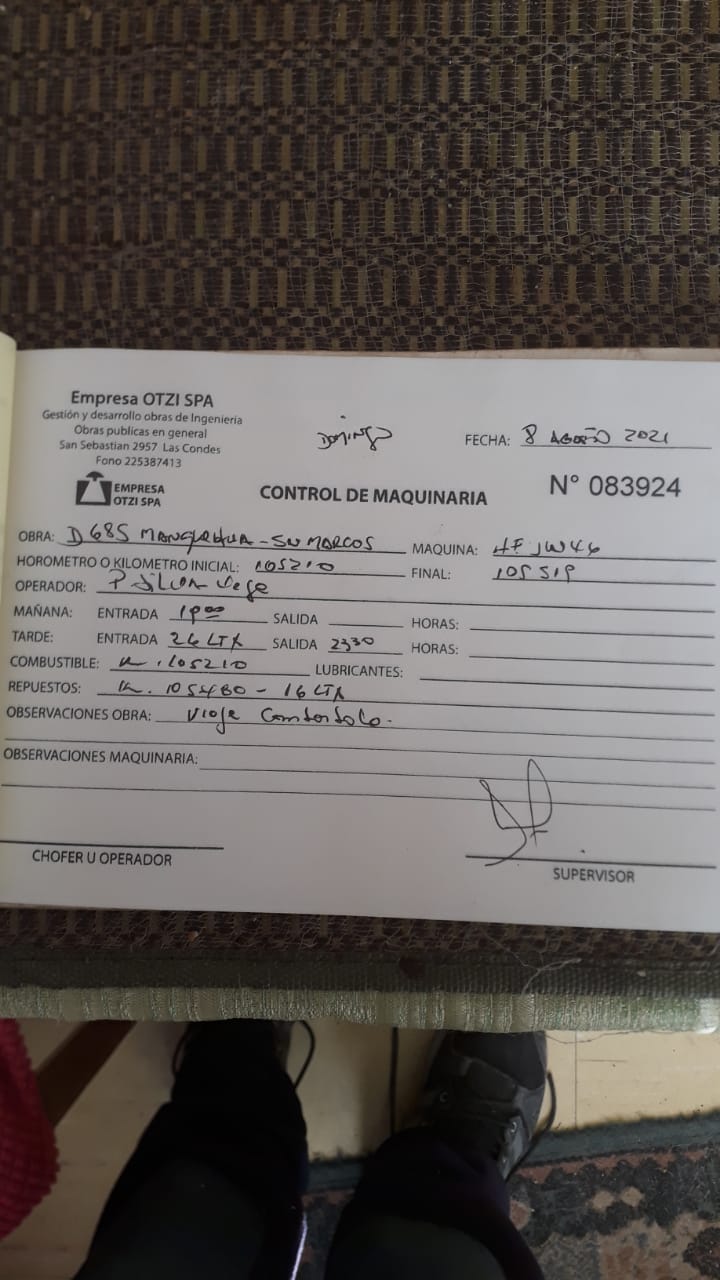 Empresa OTZI SPA
Gestión y desarrollo obras de Ingeniería
Obras publicas en general
San Sebastian 2957 Las Condes
Fono 225387413
EMPRESA
OTZI SPA
DOMINGO
FECHA: 8 AGOSTO 2021
CONTROL DE MAQUINARIA
N° 083924
OBRA: D685 - SN MARCOS
MAQUINA: HFJW46
HOROMETRO O KILOMETRO INICIAL: 105210
FINAL: 105519
OPERADOR: P Silva Vega
MAÑANA: ENTRADA 19:00 SALIDA HORAS:
TARDE: ENTRADA 26 LTX SALIDA 2330 HORAS:
COMBUSTIBLE: K. 105210 LUBRICANTES:
REPUESTOS: K. 105480 - 16 LTX
OBSERVACIONES OBRA: Viaje
OBSERVACIONES MAQUINARIA:
CHOFER U OPERADOR
SUPERVISOR